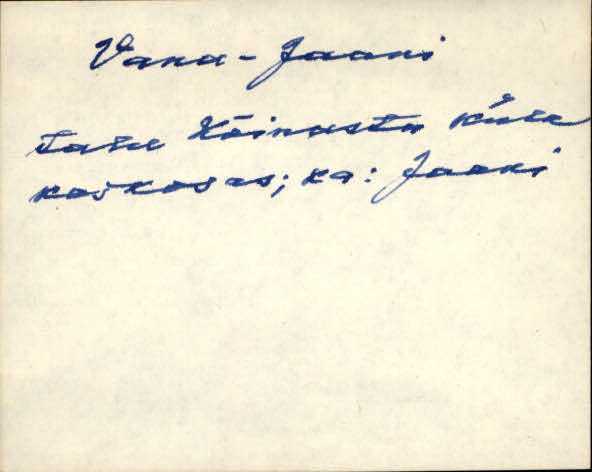 Vana-Jaani
talu Kõinastu küla
keskosas; ka: Jaani